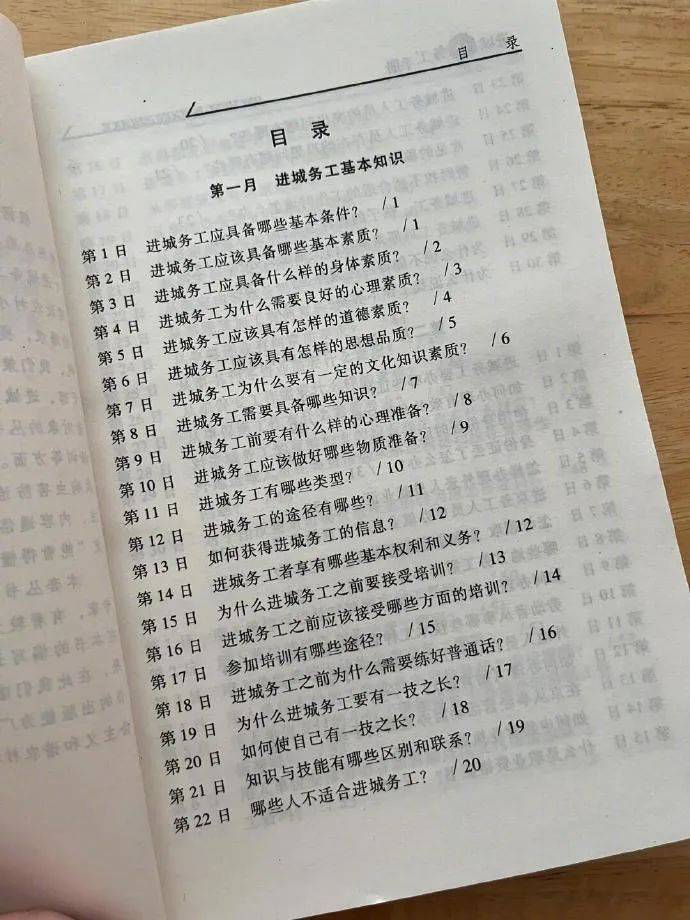 目 录
目 录
第一月 进城务工基本知识
第1日 进城务工应具备哪些基本条件? /1
第2日 进城务工应该具备哪些基本素质? /1
第3日 进城务工应具备什么样的身体素质? /2
第4日 进城务工为什么需要良好的心理素质? /3
第5日 进城务工应该具有怎样的道德素质? /4
第6日 进城务工应该具有怎样的思想品质? /5
第7日 进城务工为什么要有一定的文化知识素质? /6
第8日 进城务工需要具备哪些知识? /7
第9日 进城务工前要有什么样的心理准备? /8
第10日 进城务工应该做好哪些物质准备? /9
第11日 进城务工有哪些类型? /10
第12日 进城务工的途径有哪些? /11
第13日 如何获得进城务工的信息? /12
第14日 进城务工者享有哪些基本权利和义务? /12
第15日 为什么进城务工之前要接受培训? /13
第16日 进城务工之前应该接受哪些方面的培训? /14
第17日 参加培训有哪些途径? /15
第18日 进城务工之前为什么需要练好普通话? /16
第19日 为什么进城务工要有一技之长? /17
第20日 如何使自己有一技之长? /18
第21日 知识与技能有哪些区别和联系? /19
第22日 哪些人不适合进城务工? /20